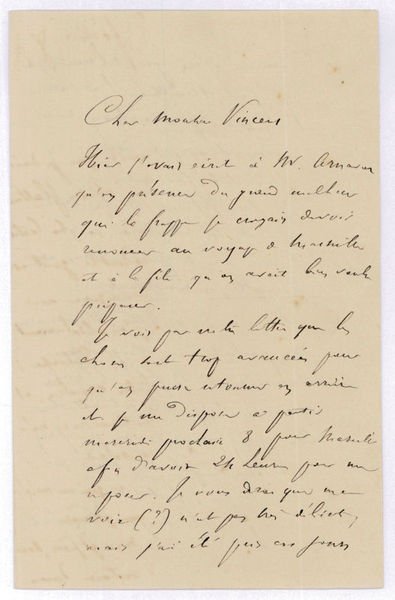 Cher Monsieur Vincens
Hier j'avais écrit à Mr. Arnavon
qu'en présence du grand malheur
qui le frappe je croyais devoir
renoncer au voyage de Marseille
et à la fête qu'on avait bien voulu
préparer.
Je vois par votre lettre que les
choses sont trop avancées pour
qu'on puisse retourner en arrière
et je me dispose à partir
mercredi prochain 8 pour Marseille
afin d'avoir 24 heures pour me
reposer. Je vous dirai que ma
voix (?) n'est pas très
mais j'ai été pris ces jours